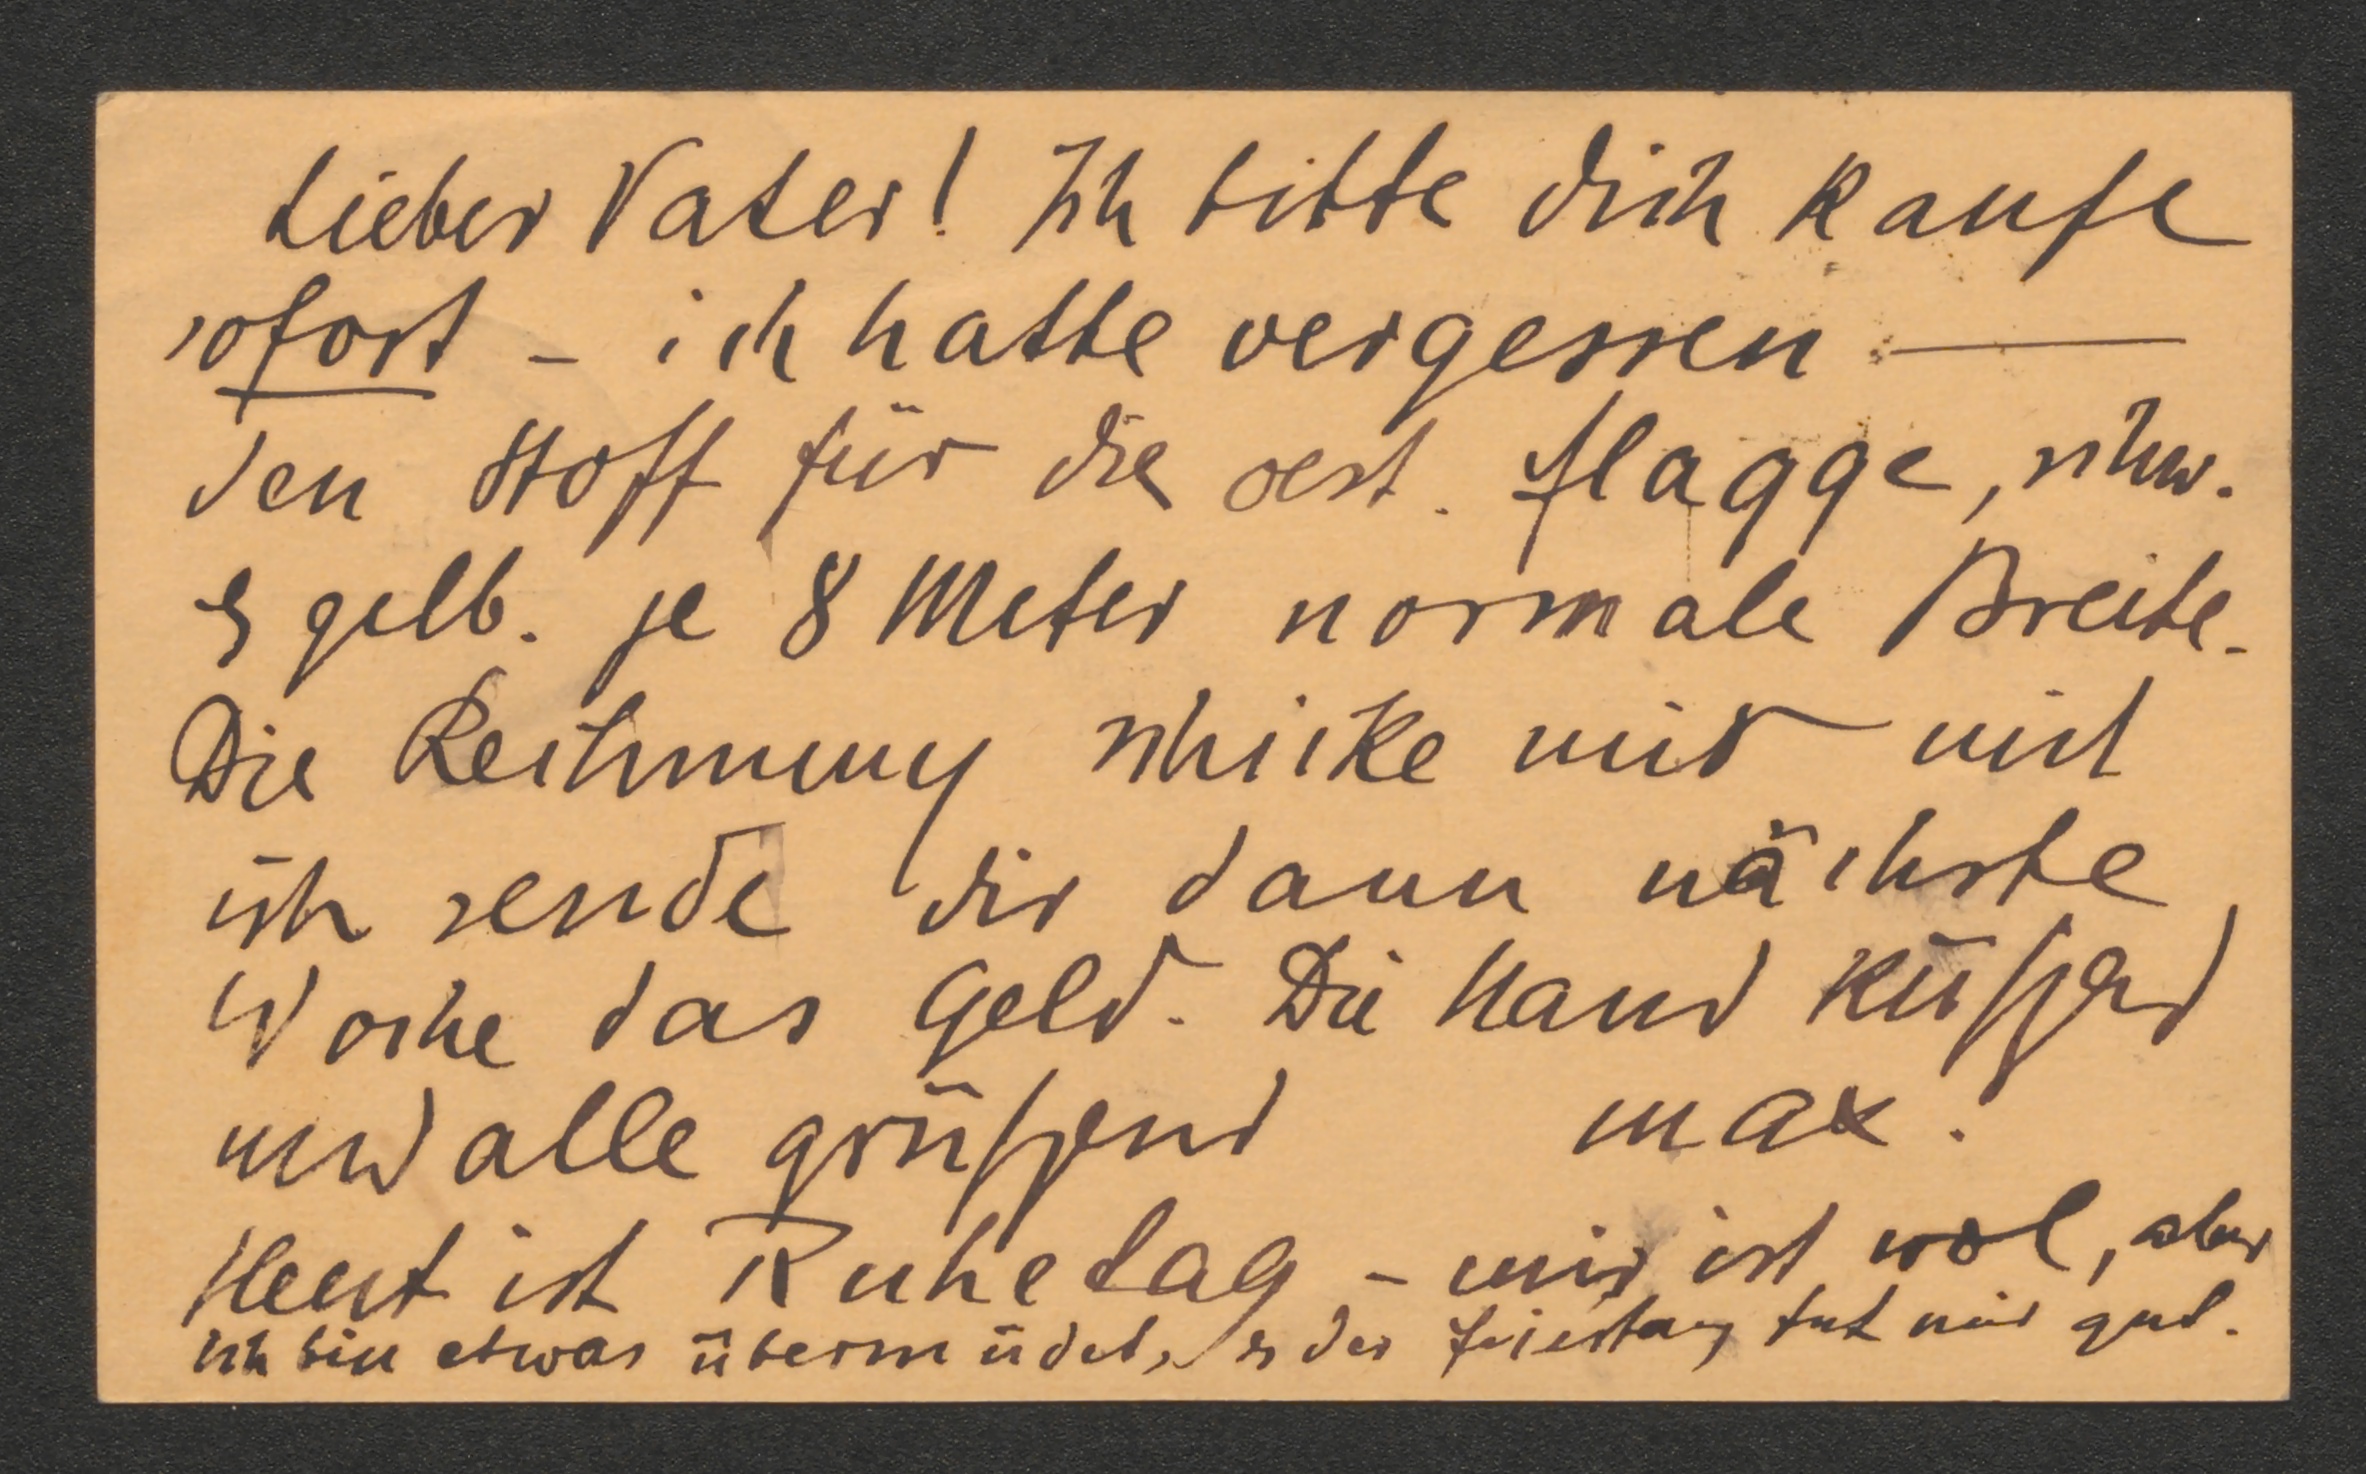 Lieber Vater! Ich bitte dich kaufe
sofort - ich hatte vergessen —
den Stoff für die oest. Flagge, schw.
& gelb. je 8 Meter normale Breite.
Die Rechnung schicke mir mit
ich sende dir dann nächste
Woche das Geld. Die Hand küssend
und alle grüssend max.
Heut ist Ruhetag - mir ist wol, aber
ich bin etwas übermüdet, & der Feiertag tut mir gut.